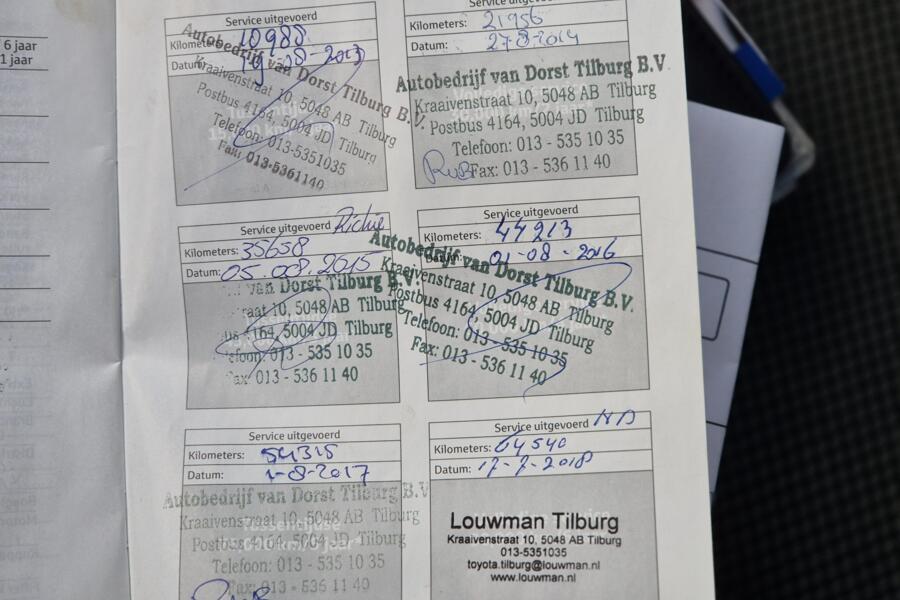 6 jaar
1 jaar
Service uitgevoerd
Kilometers: 10988
Datum: 19-08-2013
Autobedrijf van Dorst Tilburg B.V.
Kraaivenstraat 10, 5048 AB Tilburg
Postbus 4164, 5004 JD Tilburg
Telefoon: 013-5351035
Fax: 013-5361140
Kilometers: 21956
Datum: 27-8-2014
Autobedrijf van Dorst Tilburg B.V.
Kraaivenstraat 10, 5048 AB Tilburg
Postbus 4164, 5004 JD Tilburg
Telefoon: 013 - 535 10 35
Fax: 013 - 536 11 40
Service uitgevoerd Richie
Kilometers: 35658
Datum: 05.08.2015
van Dorst Tilburg B.V.
raat 10, 5048 AB Tilburg
us 4164, 5004 JD Tilburg
efoon: 013 - 535 10 35
ax: 013 - 536 11 40
Service uitgevoerd
Kilometers: 44213
01-08-2016
Autobedrijf van Dorst Tilburg B.V.
Kraaivenstraat 10, 5048 AB Tilburg
Postbus 4164, 5004 JD Tilburg
Telefoon: 013 - 535 10 35
Fax: 013 - 536 11 40
Service uitgevoerd
Kilometers: 54315
Datum: 1-8-2017
Autobedrijf van Dorst Tilburg B.V.
Kraaivenstraat 10, 5048 AB Tilburg
Postbus 4164, 5004 JD Tilburg
Telefoon: 013 - 535 10 35
Fax: 013 - 536 11 40
Service uitgevoerd
Kilometers: 64540
Datum: 17-7-2018
Louwman Tilburg
Kraaivenstraat 10, 5048 AB Tilburg
013-5351035
toyota.tilburg@louwman.nl
www.louwman.nl